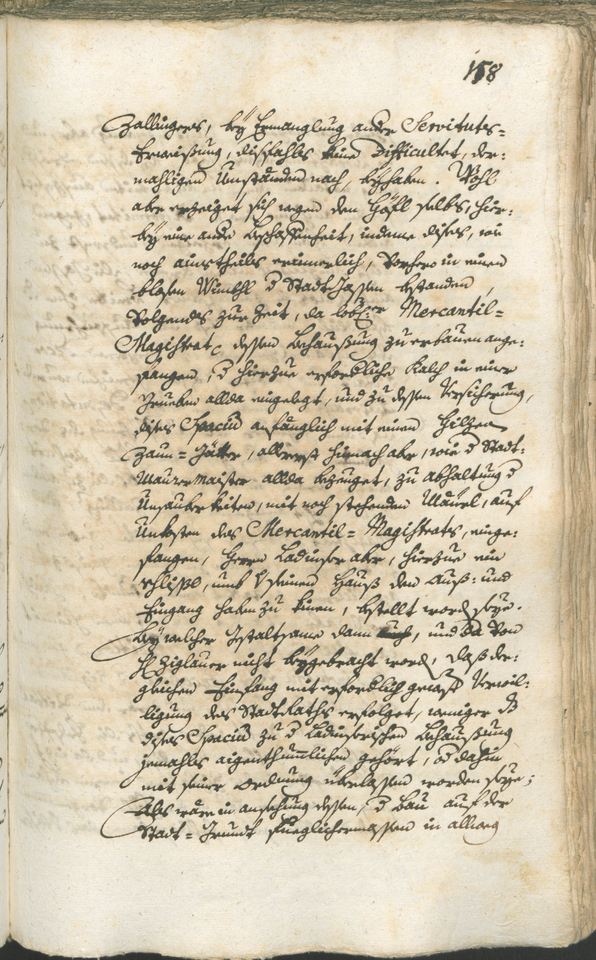 158
Zallingers, bey Ermanglung ander Servituts-
Erweißung, dißfahls keine Difficultet, der-
mahligen Umständen nach, beyhaben. Wohl
aber erzeiget sich wegen den Höfl selbs, hier-
bey eine andere Beschaffenheit, indeme dises, wie
noch ainstheils erinnerlich, vorhero in einen
blosen Winkhl d Stadt Gassen bestanden,
volgendes zur Zeit, da löbl. Mercantil-
Magistrat, dessen Behaußung zu erbauen ange-
fangen, d hierzue erforderliche Kalch in einer
Grueben allda eingelegt, und zu dessen Versicherung,
dises Spacium anfänglich mit einen hilzen
Zaun-Gätter, allererst hernach aber, wie d Stadt-
Maurermaister allda bezeuget, zu abhaltung d
Unsauberkeiten, mit noch stehenden Mäurl, auf
Unkosten des Mercantil-Magistrats, einge-
fangen, herrn Ladinser aber, hierzue ein
schlißl, umb seinen Hauß den Auß- und
Eingang haben zu kinen, bestellt word seye.
Bey welcher Gestaltsame dann, und da von
H Ziglauer nicht beygebracht word, daß der-
gleichen Einfang mit erforderlich gewest Verwil-
ligung des Stadt Raths erfolget, weniger dß
dises Spacium zu d Ladinserischen Behaußung
jemahls aigenthümlichen gehört, od dahin
mit seiner Ordnung überlassen worden seye;
Als wäre in ansehung dessen, d Bau auf der
Stadt-Grundt füeglichermassen in allweg